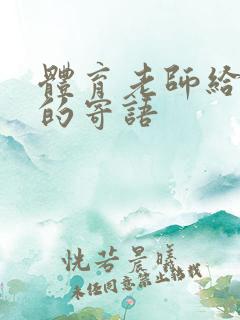 體育老師給
的寄語
恍若晨曦
未経同意禁止轉載